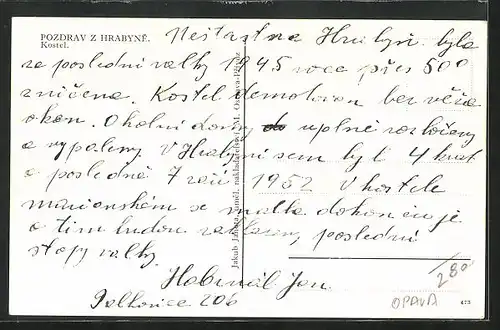 POZDRAV Z HRABYNĚ.
Kostel.
Nešťastna Hrabyň byla
za poslední valky 1945 roce přes 500
zničena. Kostel demolovan bez věže
oken. Okolní domy uplně rozbořeny
a vypaleny. V Hrabyni sem byl 4 krat
a posledně 7 září 1952 V kostele
marianském se malba dokončuje
a tim budou poslední
stopy valky.
Habernál Jan.
206
Jakub
OPAVA
280
473